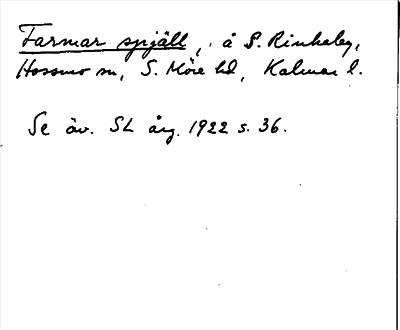 Farmar spjäll, å S. Rinkaby,
Hossmo sn, S. Möre hd, Kalmar l.
Se äv. SL årg. 1922 s. 36.